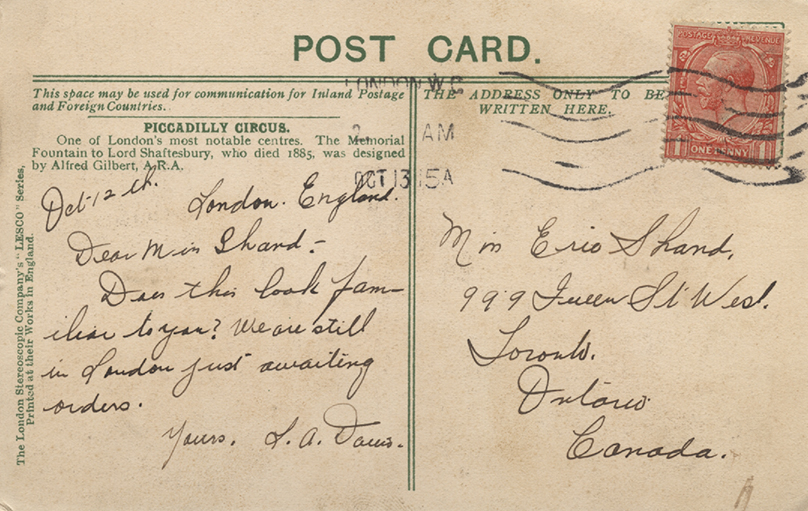 POST CARD.
This space may be used for communication for Inland Postage
and Foreign Countries.
THE ADDRESS ONLY TO BE
WRITTEN HERE.
PICCADILLY CIRCUS.
One of London's most notable centres. The Memorial
Fountain to Lord Shaftesbury, who died 1885, was designed
by Alfred Gilbert, A.R.A.
The London Stereoscopic Company's "LESCO" Series,
Printed at their Works in England.
LONDON W.C
AM
OCT 13 15 A
POSTAGE REVENUE
ONE PENNY
Oct-12th.
London. England.
Dear Miss Shand-
Does this look fam-
iliar to you? We are still
in London just awaiting
orders.
Yours.
Miss Shand,
999 Queen St West.
Toronto.
Ontario
Canada.